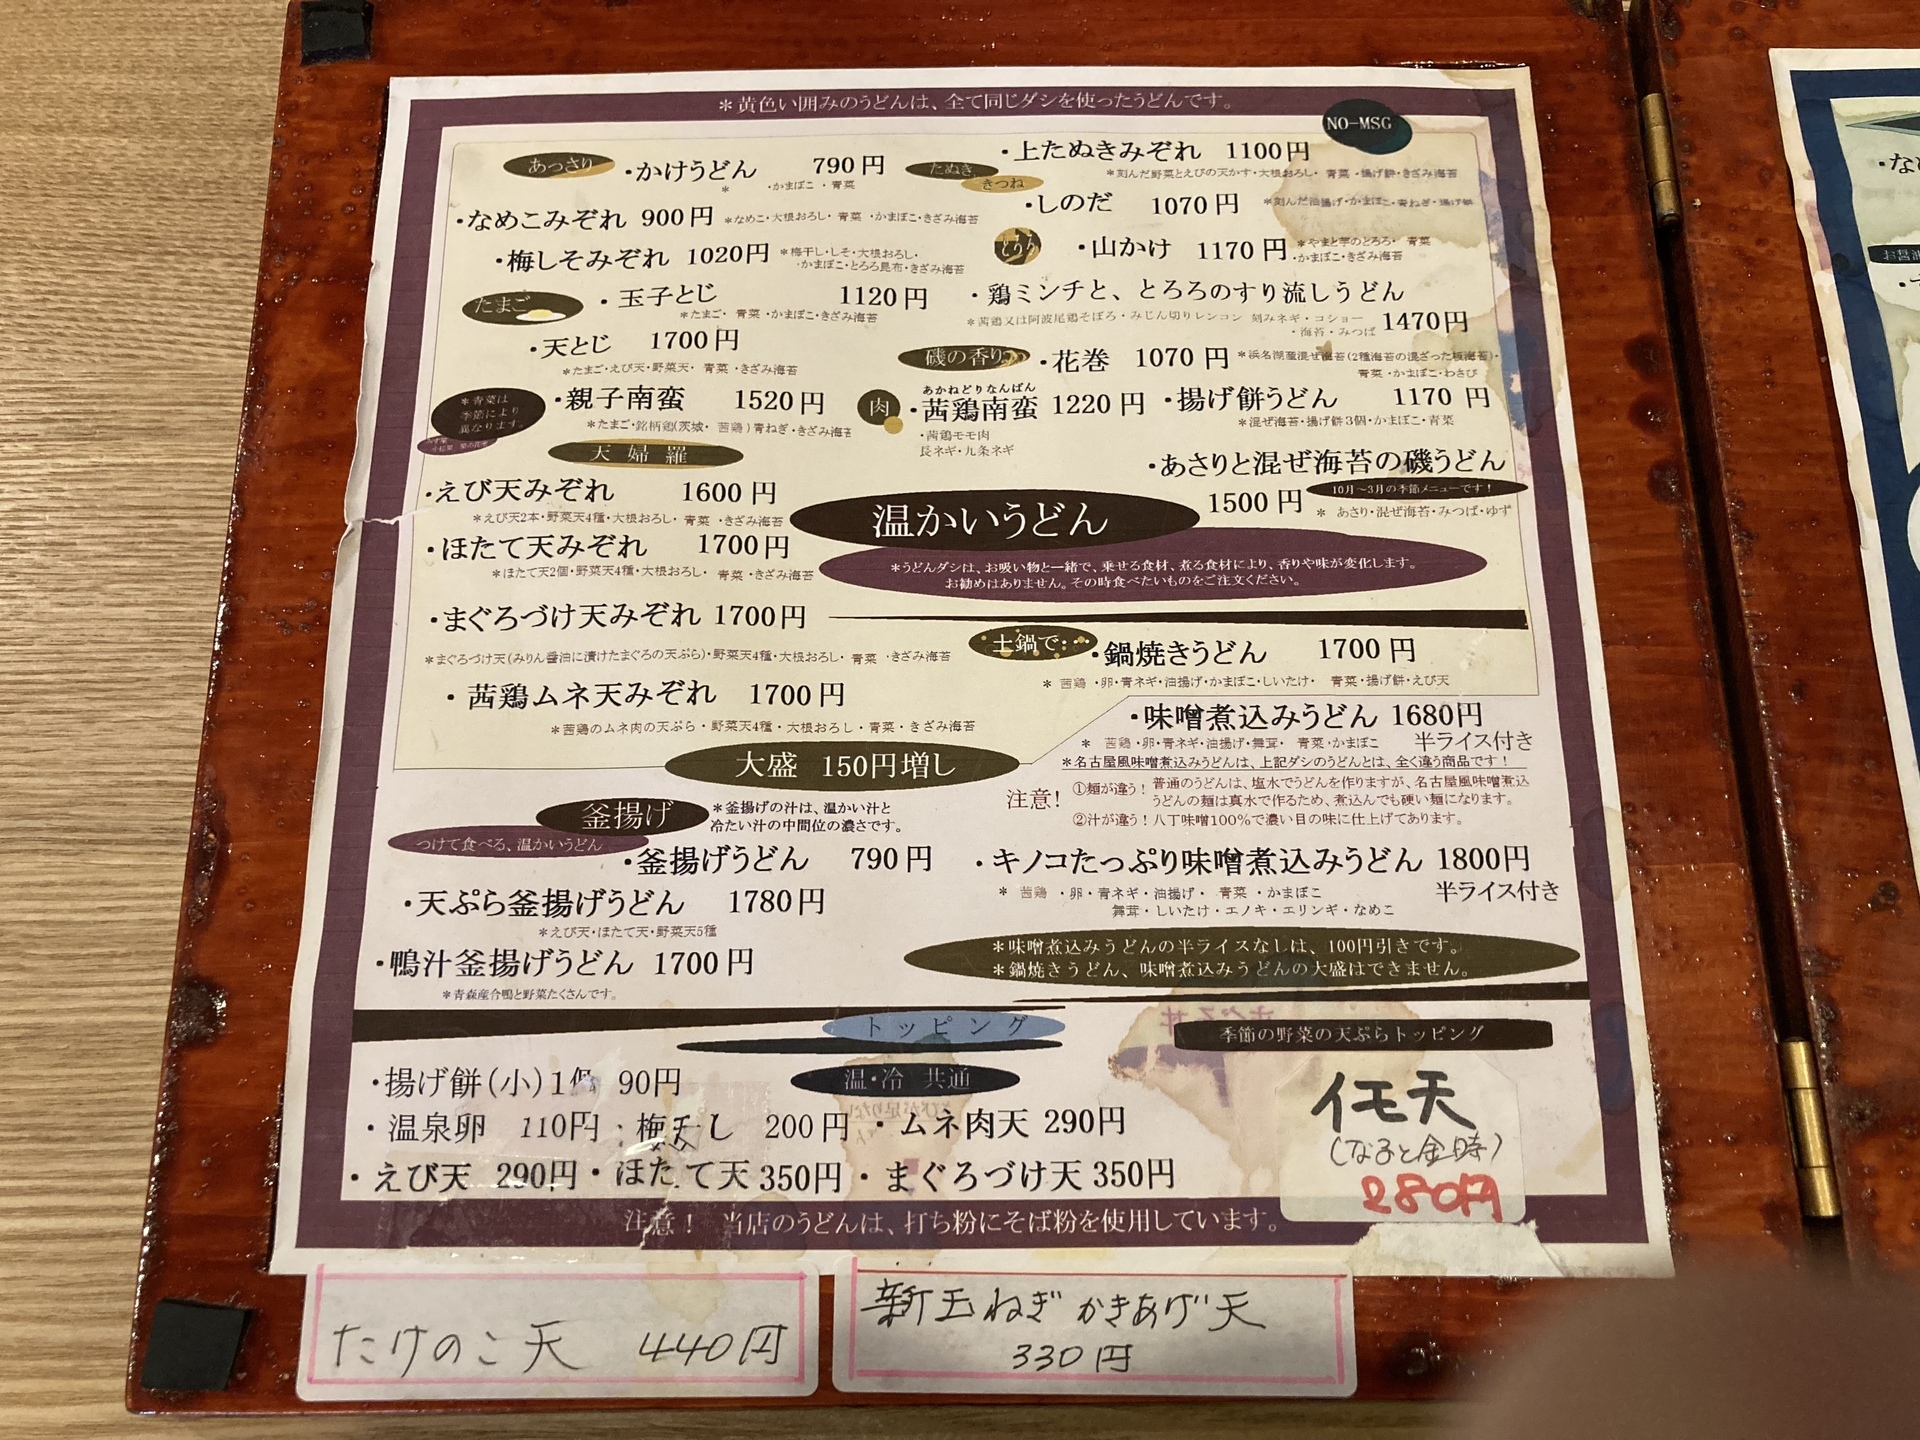 ＊黄色い囲みのうどんは、全て同じダシを使ったうどんです。
NO-MSG
あっさり
・かけうどん 790円
＊ ・かまぼこ・青菜
・なめこみぞれ 900円 ＊なめこ・大根おろし・青菜・かまぼこ・きざみ海苔
・梅しそみぞれ 1020円 ＊梅干し・しそ・大根おろし・
・かまぼこ・とろろ昆布・きざみ海苔
たまご
・玉子とじ 1120円
＊たまご・青菜・かまぼこ・きざみ海苔
・天とじ 1700円
＊たまご・えび天・野菜天・青菜・きざみ海苔
＊青菜は
季節により
異なります。
・親子南蛮 1520円
＊たまご・銘柄鶏(茨城・茜鶏)青ねぎ・きざみ海苔
たぬき
きつね
・上たぬきみぞれ 1100円
＊刻んだ野菜とえびの天かす・大根おろし・青菜・揚げ餅・きざみ海苔
・しのだ 1070円 ＊刻んだ油揚げ・かまぼこ・青ねぎ・揚げ餅
とろろ
・山かけ 1170円 ＊やまと芋のとろろ・青菜
・かまぼこ・きざみ海苔
・鶏ミンチと、とろろのすり流しうどん
＊茜鶏又は阿波尾鶏そぼろ・みじん切りレンコン 刻みネギ・コショー
・海苔・みつば 1470円
磯の香り
・花巻 1070円 ＊浜名湖産混ぜ海苔(2種海苔の混ざった板海苔)・
青菜・かまぼこ・わさび
肉
あかねどりなんばん
・茜鶏南蛮 1220円
・茜鶏モモ肉
長ネギ・九条ネギ
・揚げ餅うどん 1170円
＊混ぜ海苔・揚げ餅3個・かまぼこ・青菜
・あさりと混ぜ海苔の磯うどん
1500円 10月〜3月の季節メニューです！
＊ あさり・混ぜ海苔・みつば・ゆず
天婦羅
・えび天みぞれ 1600円
＊えび天2本・野菜天4種・大根おろし・青菜・きざみ海苔
・ほたて天みぞれ 1700円
＊ほたて天2個・野菜天4種・大根おろし・青菜・きざみ海苔
・まぐろづけ天みぞれ 1700円
＊まぐろづけ天(みりん醤油に漬けたまぐろの天ぷら)・野菜天4種・大根おろし・青菜・きざみ海苔
・茜鶏ムネ天みぞれ 1700円
＊茜鶏のムネ肉の天ぷら・野菜天4種・大根おろし・青菜・きざみ海苔
温かいうどん
＊うどんダシは、お吸い物と一緒で、乗せる食材、煮る食材により、香りや味が変化します。
お勧めはありません。その時食べたいものをご注文ください。
土鍋で
・鍋焼きうどん 1700円
＊ 茜鶏・卵・青ネギ・油揚げ・かまぼこ・しいたけ・青菜・揚げ餅・えび天
大盛 150円増し
・味噌煮込みうどん 1680円
＊ 茜鶏・卵・青ネギ・油揚げ・舞茸・青菜・かまぼこ 半ライス付き
＊名古屋風味噌煮込みうどんは、上記ダシのうどんとは、全く違う商品です！
注意！
①麺が違う！普通のうどんは、塩水でうどんを作りますが、名古屋風味噌煮込
うどんの麺は真水で作るため、煮込んでも硬い麺になります。
②汁が違う！八丁味噌100%で濃い目の味に仕上げてあります。
釜揚げ
＊釜揚げの汁は、温かい汁と
冷たい汁の中間位の濃さです。
つけて食べる、温かいうどん
・釜揚げうどん 790円
・天ぷら釜揚げうどん 1780円
＊えび天・ほたて天・野菜天5種
・鴨汁釜揚げうどん 1700円
＊青森産合鴨と野菜たくさんです。
・キノコたっぷり味噌煮込みうどん 1800円
＊ 茜鶏・卵・青ネギ・油揚げ・青菜・かまぼこ 半ライス付き
舞茸・しいたけ・エノキ・エリンギ・なめこ
＊味噌煮込みうどんの半ライスなしは、100円引きです。
＊鍋焼きうどん、味噌煮込みうどんの大盛はできません。
トッピング
温・冷 共通
・揚げ餅(小)1個 90円
・温泉卵 110円 ・梅干し 200円 ・ムネ肉天 290円
・えび天 290円・ほたて天 350円・まぐろづけ天 350円
季節の野菜の天ぷらトッピング
イモ天
(なると金時)
280円
注意！ 当店のうどんは、打ち粉にそば粉を使用しています。
たけのこ天 440円
新玉ねぎ かきあげ天
330円